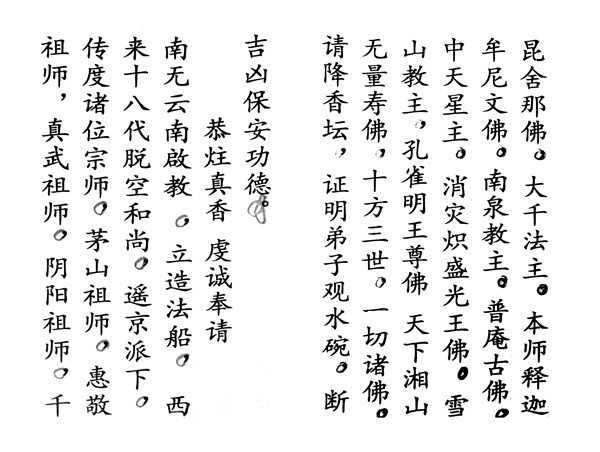 昆舍那佛。大千法主。本师释迦
牟尼文佛。南泉教主。普庵古佛。
中天星主。消灾炽盛光王佛。雪
山教主。孔雀明王尊佛 天下湘山
无量寿佛，十方三世，一切诸佛。
请降香坛，证明弟子观水碗。断
吉凶保安功德。
恭炷真香 虔诚奉请
南无云南啟教，立造法船。西
来十八代脱空和尚。遥京派下。
传度诸位宗师。茅山祖师。惠敬
祖师，真武祖师。阴阳祖师。千